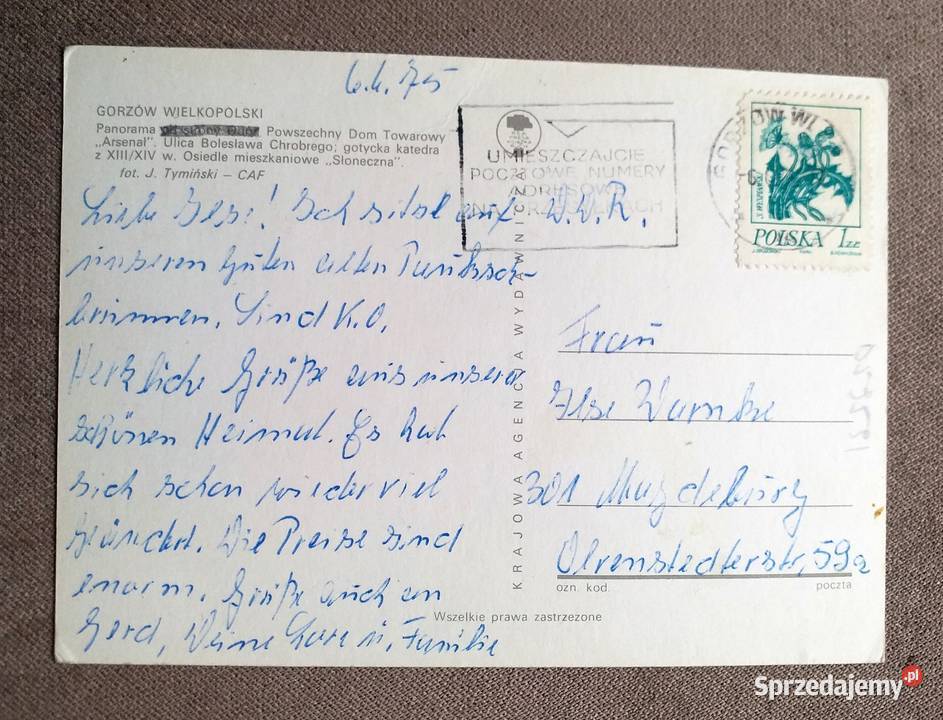 6.4.75
GORZÓW WIELKOPOLSKI
Panorama Powszechny Dom Towarowy
„Arsenał". Ulica Bolesława Chrobrego; gotycka katedra
z XIII/XIV w. Osiedle mieszkaniowe „Słoneczna".
fot. J. Tymiński — CAF
UMIESZCZAJCIE
POCZTOWE NUMERY
ADRESOWE
GORZÓW WLKP
POLSKA 1 ZŁ
Liebe Ilse! Ich sitze auf
unseren guten alten Paucksch-
brunnen. Sind K.O.
Herzliche Grüße aus unserer
schönen Heimat. Es hat
sich schon wieder viel
geändert. Die Preise sind
enorm. Grüße auch an
Gerd, Deine u. Familie
KRAJOWA AGENCJA WYDAWNICZA
Frau
Ilse Warnke
301 Magdeburg
Olvenstedterstr. 59a
ozn. kod. poczta
Wszelkie prawa zastrzeżone
Sprzedajemy.pl